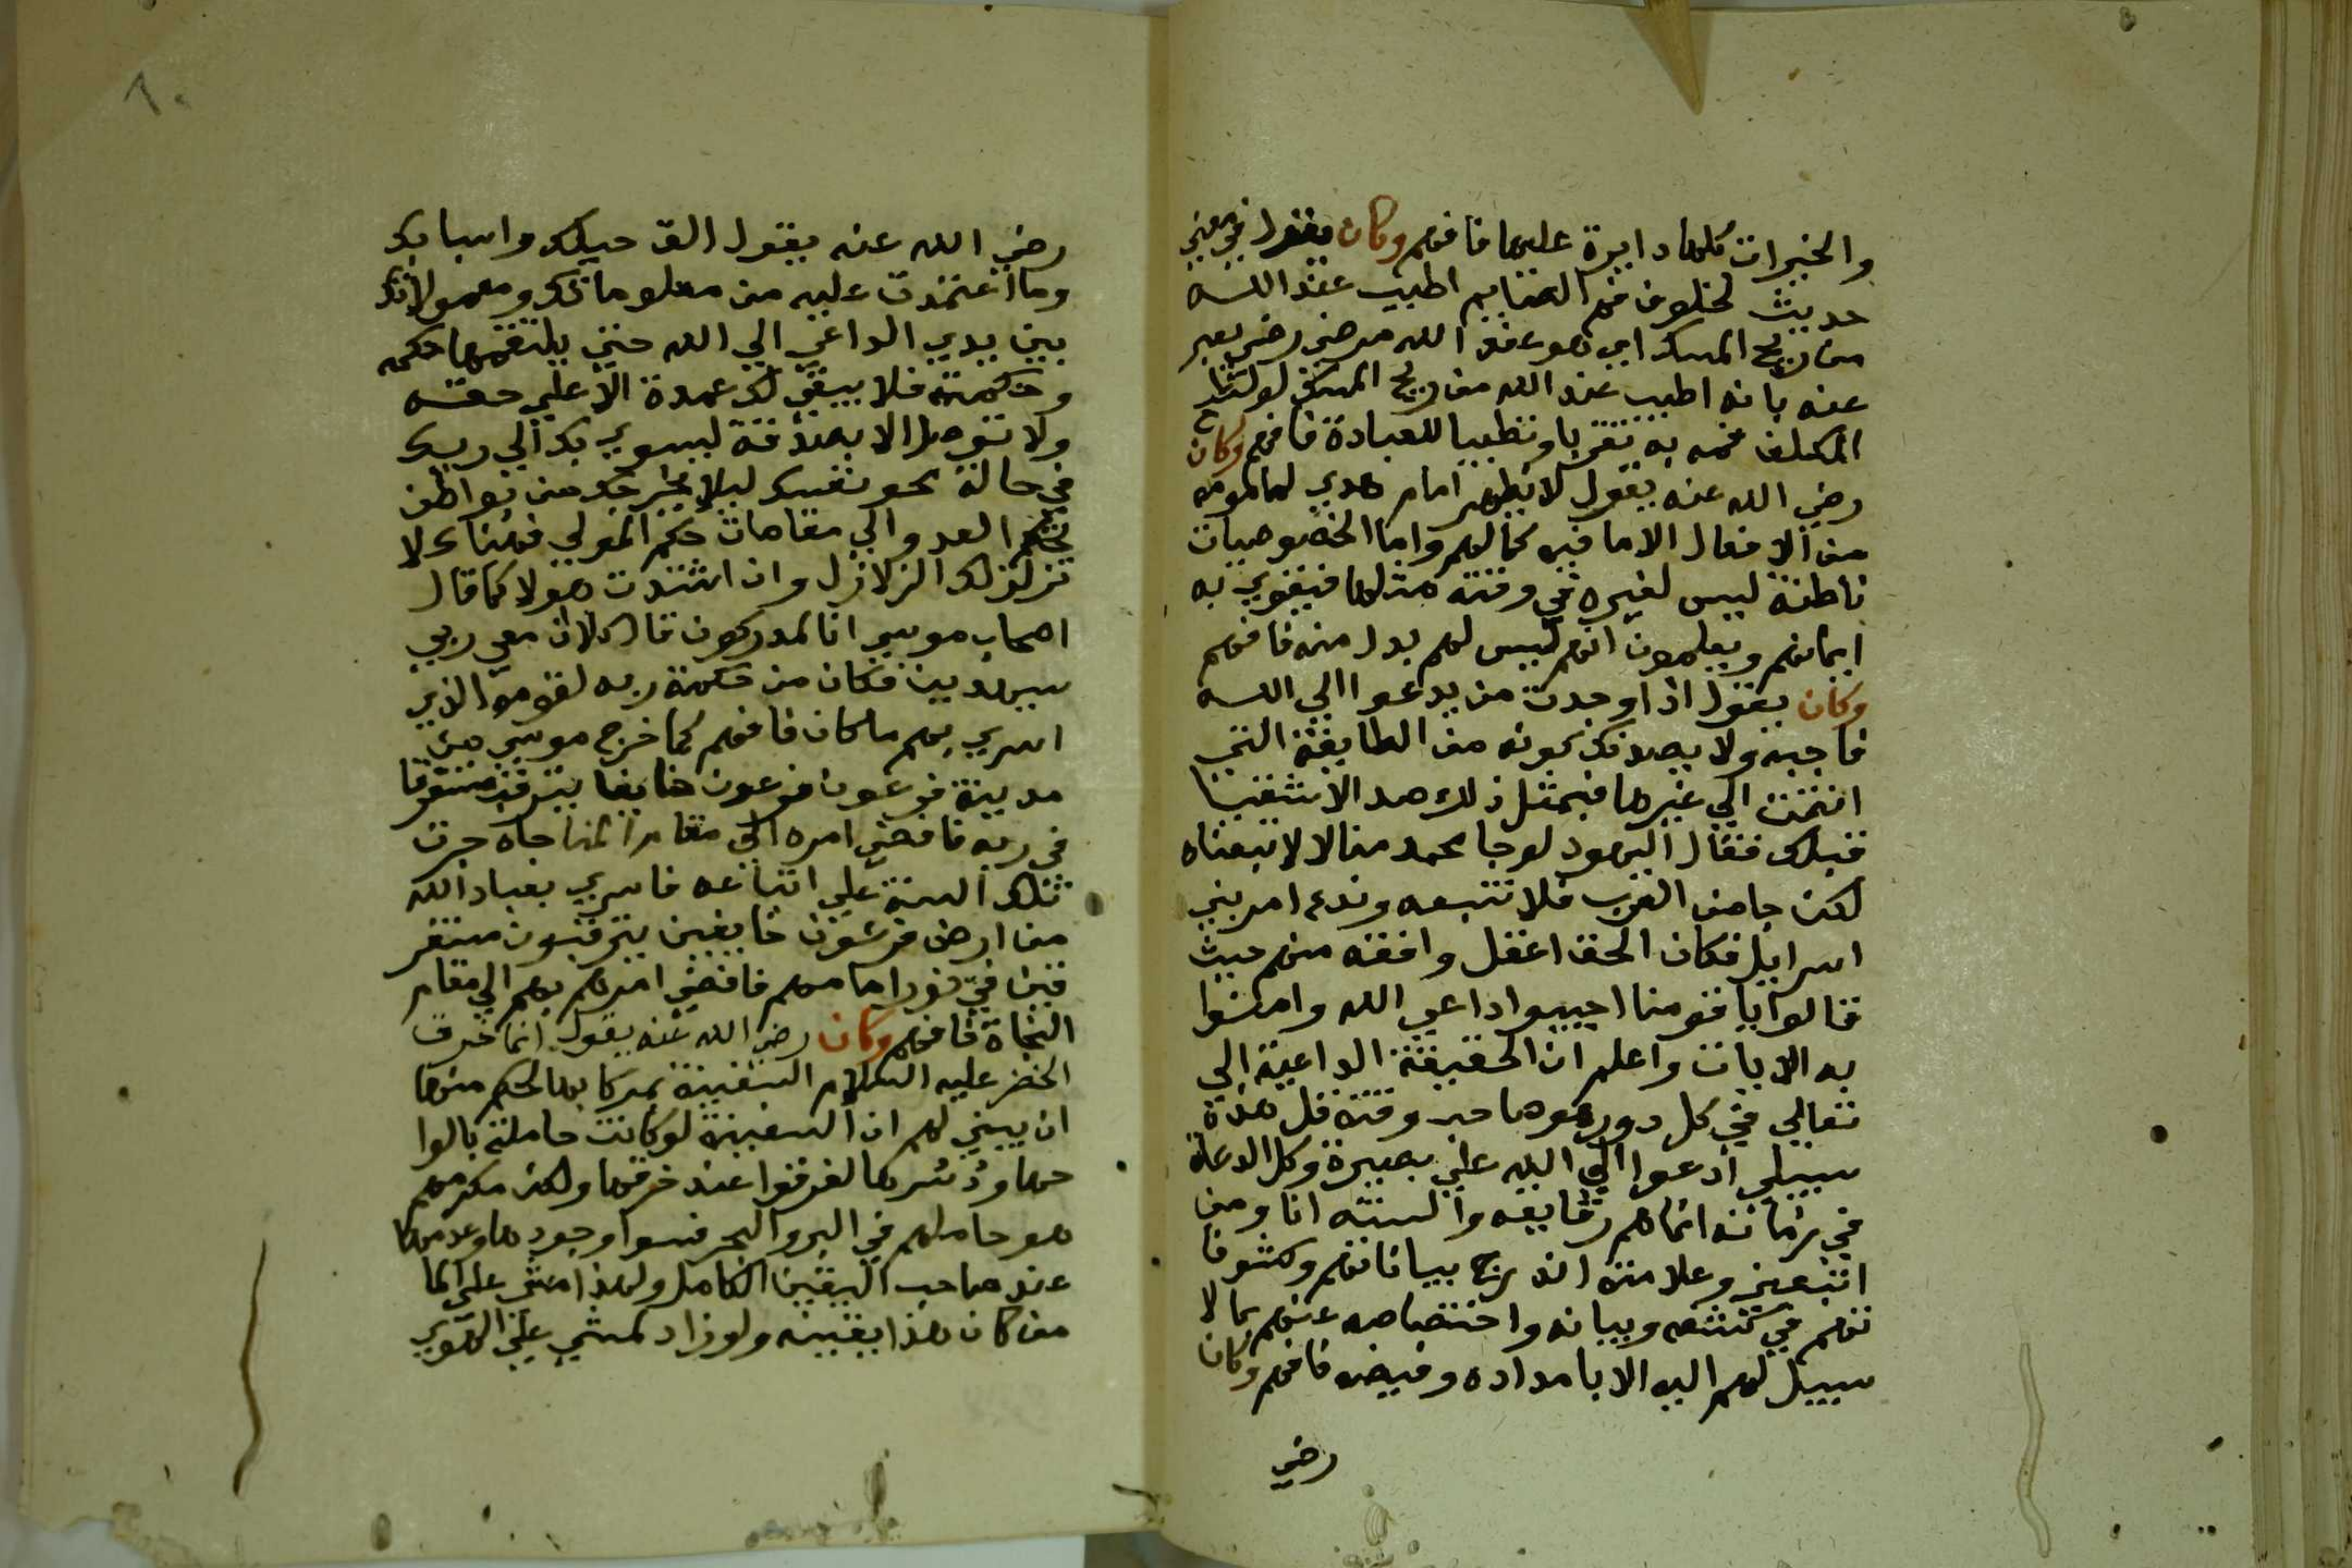 والخيرات كلها دايرة عليها فافهم وكان يقول في معني
حديث لخلوف فم الصايم اطيب عند الله
من ريح المسك اي هو عند الله مرضي رضي يعبر
عنه بانه اطيب عند الله من ريح المسك لو
المكلف فمه به تقربا وتطيبا للعبادة فافهم وكان
رضي الله عنه يقول لا يظهر امام هدي لمامومه
من الافعال الا ما فيه كمالهم واما الخصوصيات
ناطنة ليس لغيره في وقته مثلها فيقوي به
ايمانهم ويعلمون انهم ليس لهم بدل منه فافهم
وكان يقول اذا وجدت من يدعوا الي الله
فاجبه ولا يصدنك كونه من الطايفة التي
انتمت الي غيرها فبمثل ذلك صد الاشقيا
قبلك فقال اليهود لو جا محمد منا لاتبعناه
لكن جا من العرب فلا نتبعه وندع امر بني
اسراييل فكان الحق اعقل وافقه منهم حيث
قالوا يا قومنا اجيبوا داعي الله وامنوا
به الايات واعلم ان الحقيقة الداعية الي
تعالي في كل دور هو صاحب وقته قل هذه
سبيلي ادعوا الي الله علي بصيرة وكل الدعاة
في زمانه انما هم رقايقه والسنته انا ومن
اتبعني وعلامته اندراج بياناتهم وكشوفا
تهم في كشفه وبيانه واختصاصه عنهم بما لا
سبيل لهم اليه الا بامداده وفيضه فافهم وكان
رضي
رضي الله عنه يقول الق حبلك واسبابك
وما اعتمدت عليه من معلوماتك ومعمولاتك
بين يدي الداعي الي الله حتي يلتقمها حكمه
وحكمته فلا يبقي لك عمدة الا علي حقه
ولا توصل الا بصدقه ليسري بك الي ربك
في حالة محو نفسك ليلا يخرجك من مواطن
تحكم العدو الي مقامات حكم المولي فهناك لا
تزلزلك الزلازل وان اشتدت هولا كما قال
اصحاب موسي انا لمدركون قال كلا ان معي ربي
سيهدين فكان من حكمة ربه لقومو الذي
اسري بهم ما كان فافهم كما خرج موسي من
مدينة فرعون فرعون خايفا يترقب مستغرقا
في ربه فافضي امره الي مقام المناجاه جرت
تلك السنة علي اتباعه فاسري بعباد الله
من ارض فرعون خايفين يترقبون مستغر
قين في نور امامهم فافضي امرهم بهم الي مقام
النجاة فافهم وكان رضي الله عنه يقول انما خرق
الخضر عليه السلام السفينة بمركابها لحكم منها
ان يبين لهم ان السفينة لو كانت حاملة بالوا
حها ودسرها لغرقوا عند خرقها ولكن مكرمهم
هو حاملهم في البر والبحر فسوا وجودها وعدمها
عند صاحب اليقين الكامل ولهذا مشي علي الما
من كان هذا يقينه ولو زاد لمشي علي الهوي
٨٠